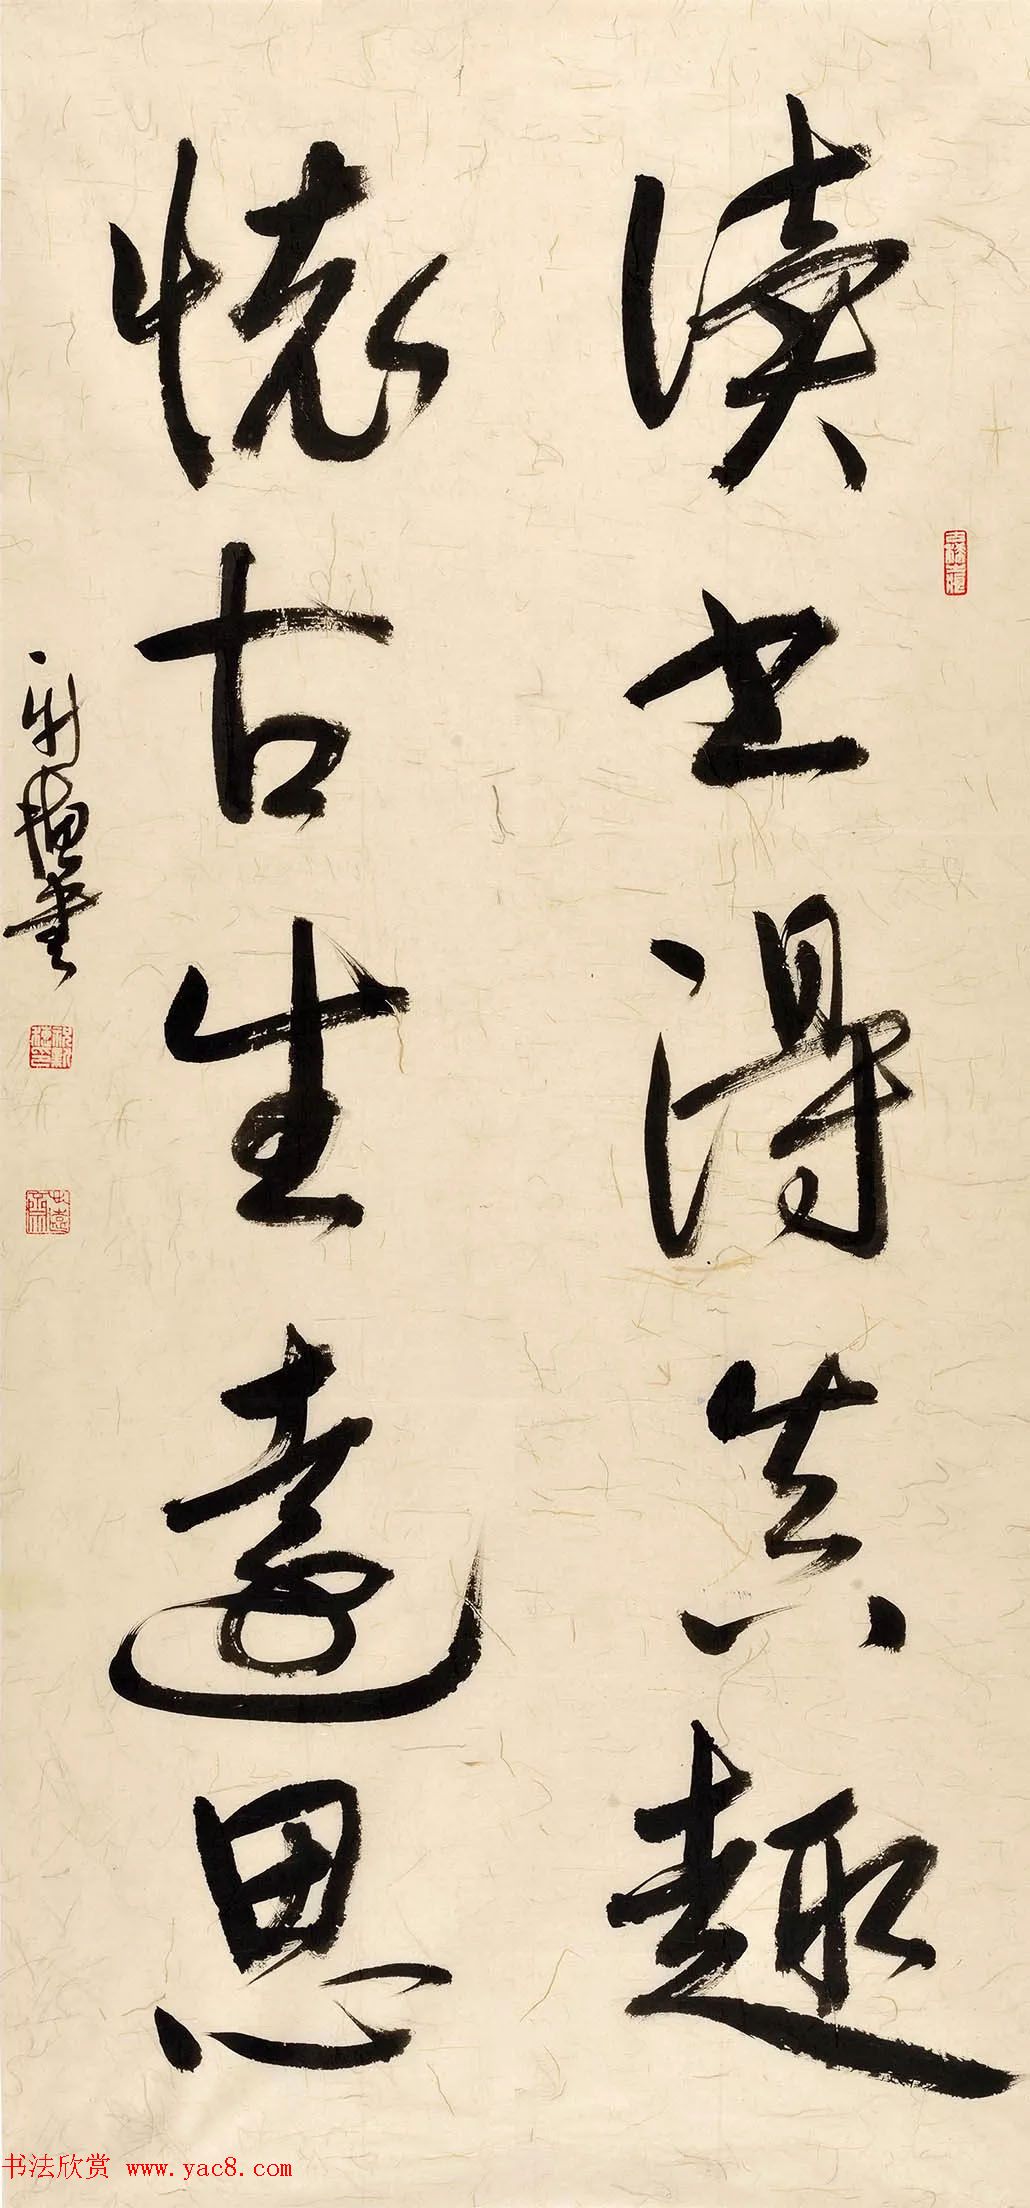 讀書得真趣
懷古生遠思
書
书法欣赏 www.yac8.com